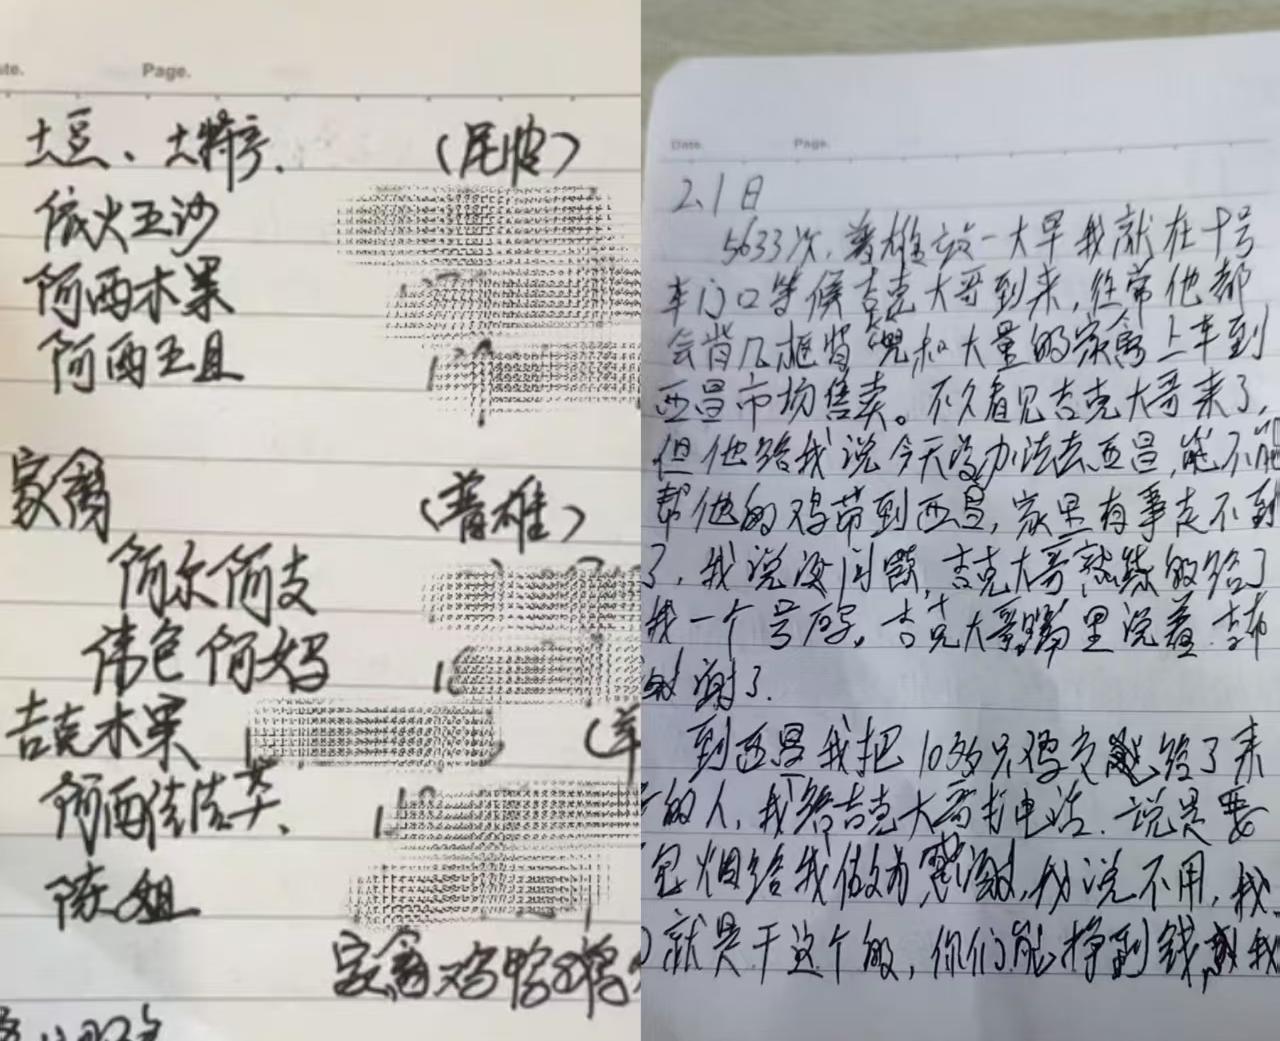 ate.
Page.
土豆、土特产.
(尼波)
依火五沙
阿西木果
阿西五且
家禽
(普雄)
阿尔阿支
伟色阿妈
吉克木果
阿西佳佳英、
陈姐
家禽鸡鸭
Date.
Page.
2.1日
5633次,普雄这一大早我就在十号
车门口等候吉克大哥到来,往常他都
会背几框背兜和大量的家禽上车到
西昌市场售卖。不久看见吉克大哥来了,
但他给我说今天没办法去西昌,能不能
帮他的鸡带到西昌,家里有事走不到
了,我说没问题,吉克大哥熟练的给了
我一个号码。吉克大哥嘴里说着
谢了.
到西昌我把10多只鸡交给了来
的人,我给吉克大哥打电话.说是要
包烟给我做为感谢,我说不用,我
就是干这个的,你们能挣到钱,我